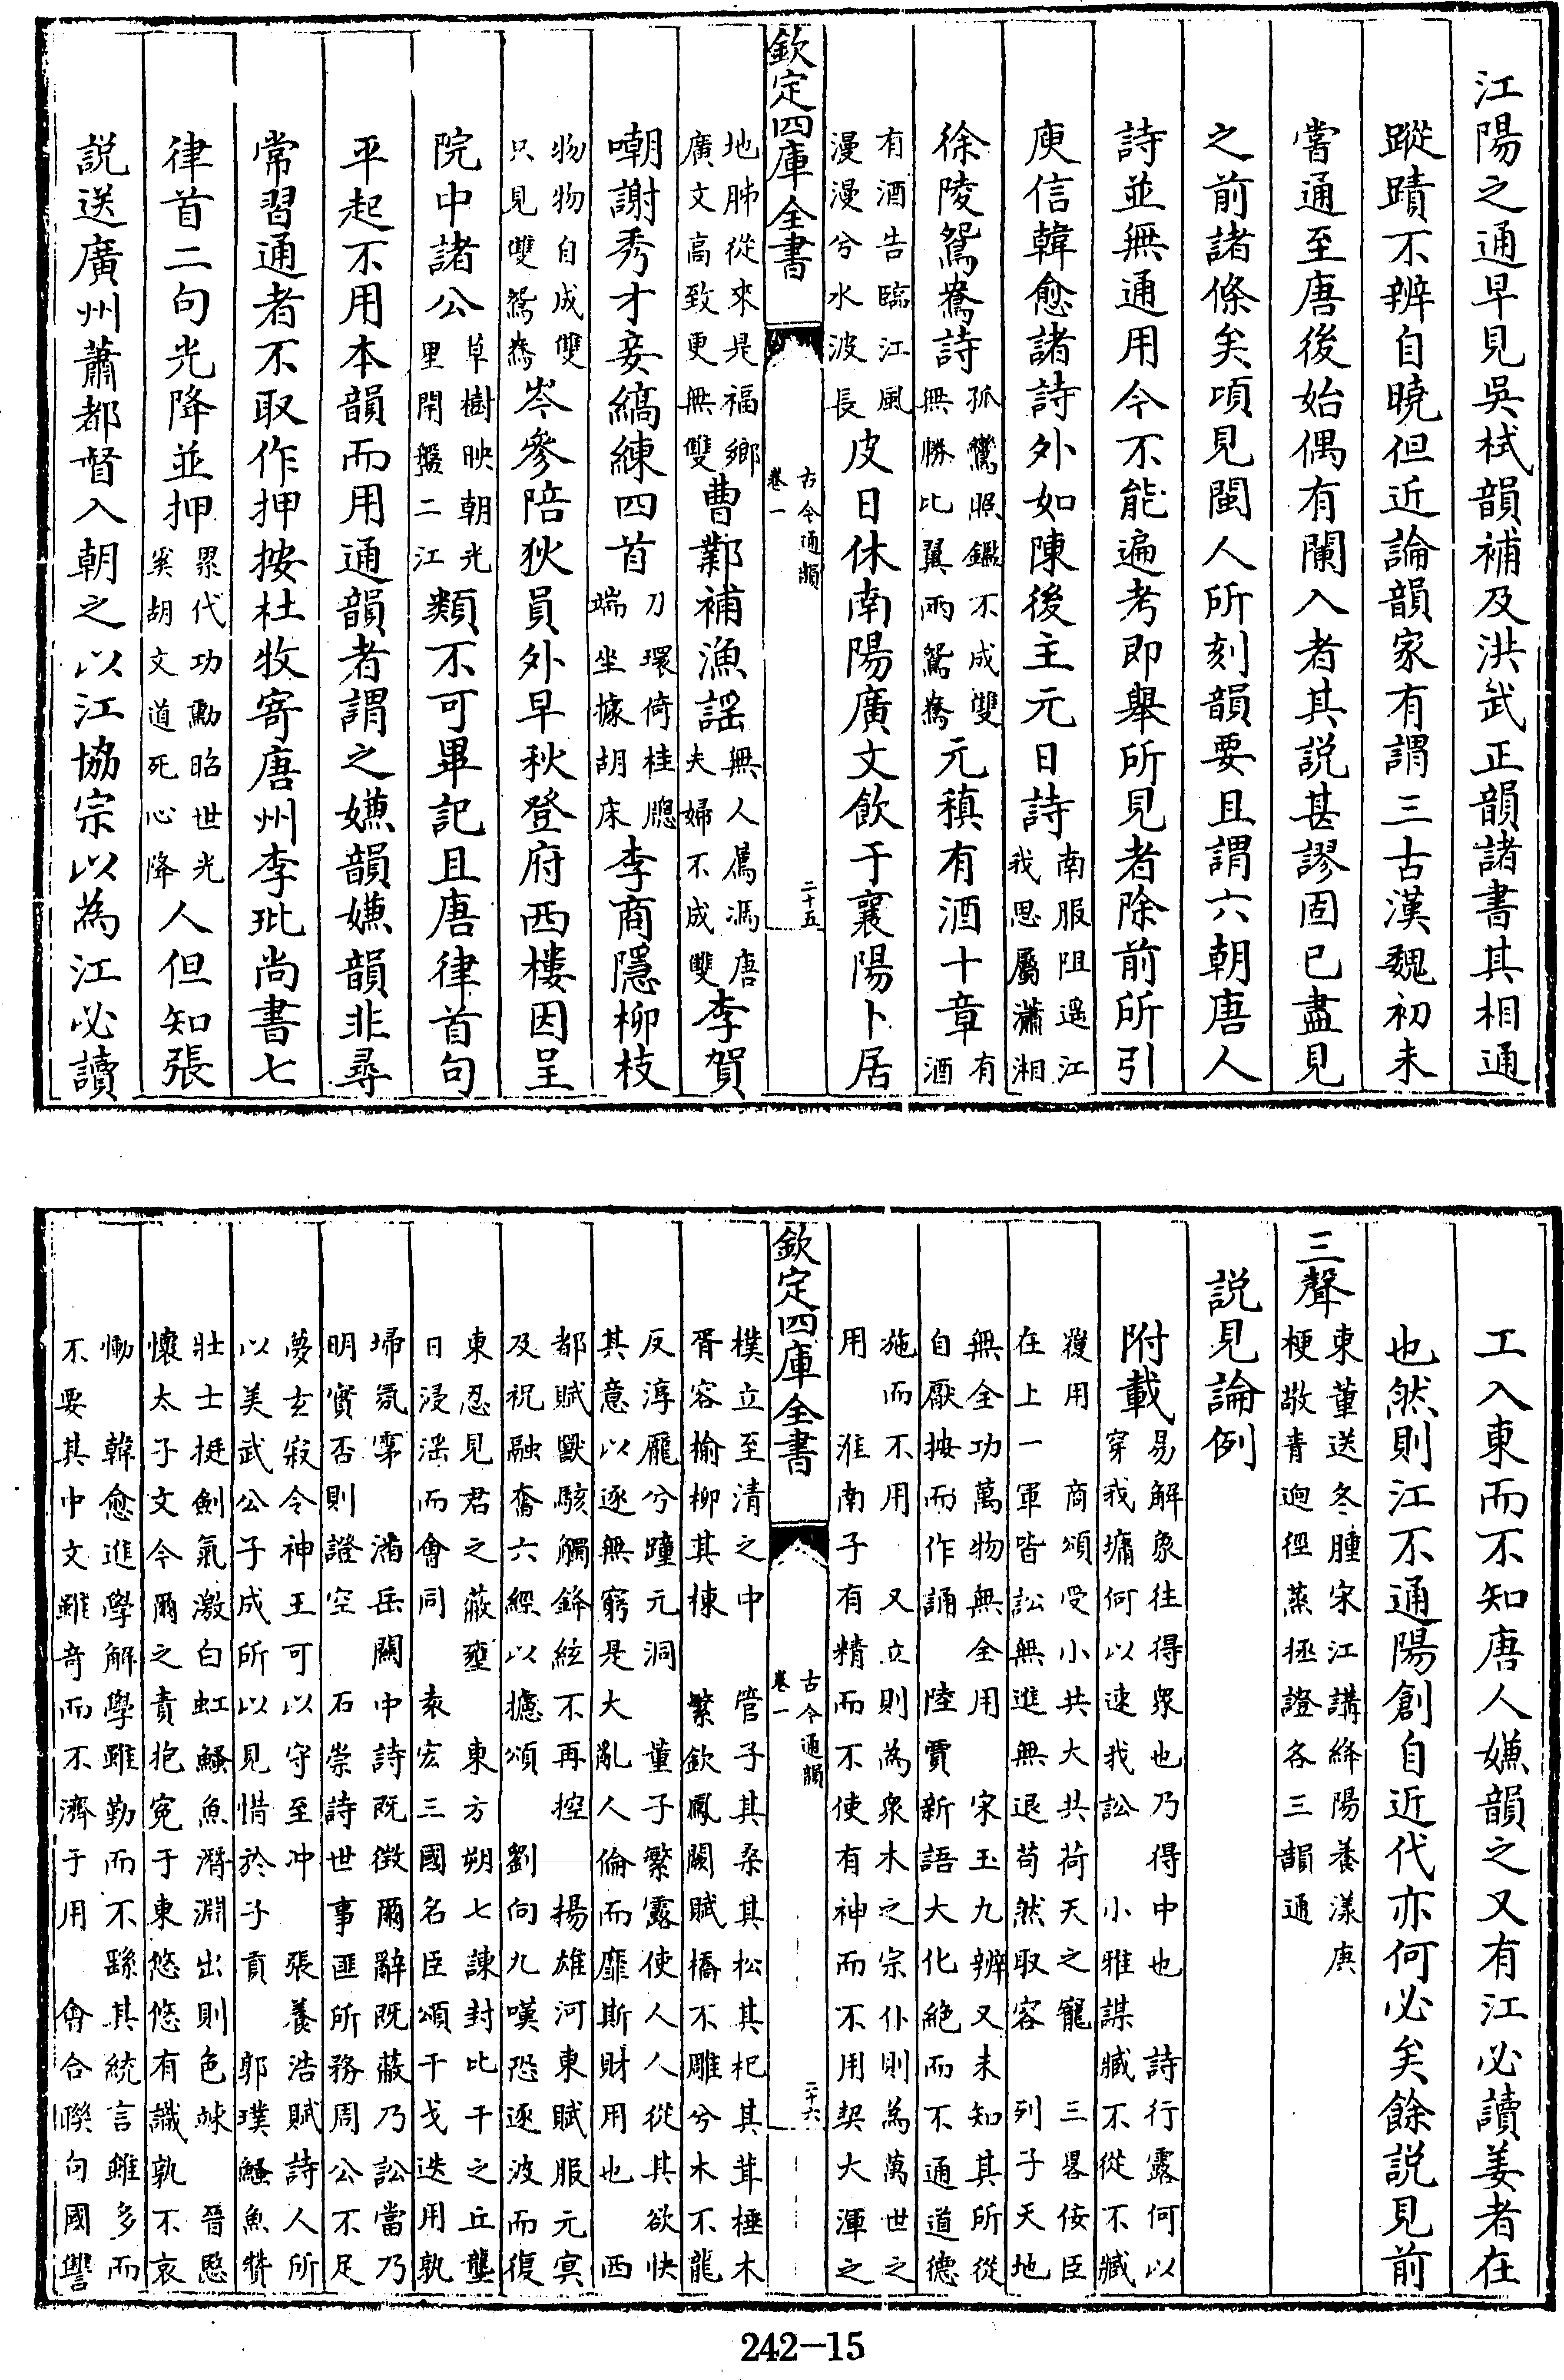 江陽之通早見吳棫韻補及洪武正韻諸書其相通
蹤蹟不辨自曉但近論韻家有謂三古漢魏初未
嘗通至唐後始偶有闌入者其説甚謬固已盡見
之前諸條矣頃見閩人所刻韻要且謂六朝唐人
詩並無通用今不能遍考即舉所見者除前所引
庾信韓愈諸詩外如陳後主元日詩南服阻遥江
我思屬瀟湘
徐陵鴛鴦詩孤鸞照鑑不成雙
無勝比翼兩鴛鴦元稹有酒十章有
酒
有酒告臨江風
漫漫兮水波長皮日休南陽廣文飲于襄陽卜居
欽定四庫全書
古今通韻
卷一
二十五
地肺從來是福鄉
廣文高致更無雙曹鄴補漁謡無人爲馮唐
夫婦不成雙李賀
嘲謝秀才妾縞練四首刀環倚桂牎
端坐據胡床李商隱柳枝
物物自成雙
只見雙鴛鴦岑參陪狄員外早秋登府西樓因呈
院中諸公草樹映朝光
里閈盤二江類不可畢記且唐律首句
平起不用本韻而用通韻者謂之嫌韻嫌韻非尋
常習通者不取作押按杜牧寄唐州李玭尚書七
律首二句光降並押累代功勳昭世光
奚胡文道死心降人但知張
説送廣州蕭都督入朝之以江協宗以為江必讀
工入東而不知唐人嫌韻之又有江必讀姜者在
也然則江不通陽創自近代亦何必矣餘説見前
三聲東董送冬腫宋江講絳陽養漾庚
梗敬青迥徑蒸拯證各三韻通
説見論例
附載易解象往得衆也乃得中也 詩行露何以
穿我墉何以速我訟 小雅謀臧不從不臧
覆用 商頌受小共大共荷天之寵 三畧佞臣
在上一軍皆訟無進無退苟然取容 列子天地
無全功萬物無全用 宋玉九辨又未知其所從
自厭按而作誦 陸賈新語大化絶而不通道德
施而不用 又立則為衆木之宗仆則為萬世之
用 淮南子有精而不使有神而不用契大渾之
欽定四庫全書
古今通韻
卷一
二十六
樸立至清之中 管子其桑其松其杞其茸椫木
胥容榆柳其棟 繁欽鳳闕賦橋不雕兮木不龍
反淳龎兮踵元洞 董子繁露使人人從其欲快
其意以逐無窮是大亂人倫而靡斯財用也 西
都賦獸駭觸鋒絃不再控 揚雄河東賦服元㝠
及祝融奮六經以攄頌 劉向九嘆恐逐波而復
東忍見君之蔽壅 東方朔七諫封比干之丘壟
日浸淫而會同 袁宏三國名臣頌干戈迭用孰
埽氛霿 潘岳關中詩既徴爾辭既蔽乃訟當乃
明實否則證空 石崇詩世事匪所務周公不足
夢玄寂令神王可以守至冲 張養浩賦詩人所
以美武公子成所以見惜於子貢 郭璞鱃魚贊
壯士挺劍氣激白虹鱃魚潛淵出則色悚 晉愍
懷太子文今爾之責抱寃于東悠悠有識孰不哀
慟 韓愈進學解學雖勤而不繇其統言雖多而
不要其中文雖奇而不濟于用 會合聯句國讐
242-15